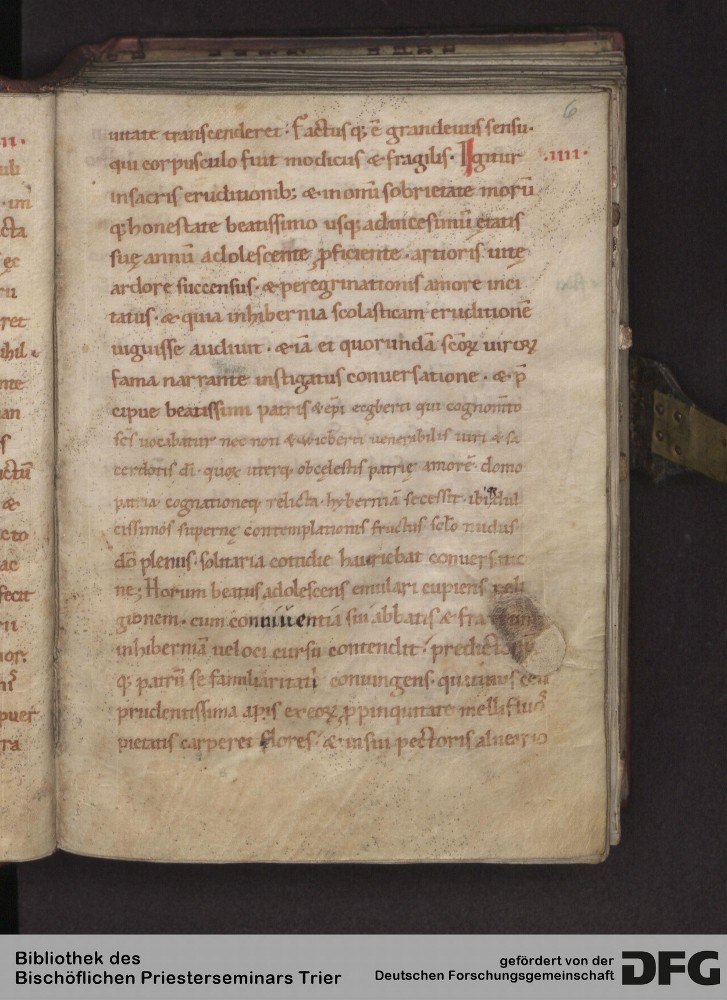 6
uitate transcenderet · Factusq; ē grandeuus sensu ·
qui corpusculo fuit modicus & fragilis · Igitur .IIII.
in sacris eruditionib; & in omī sobrietate morū
q; honestate beatissimo usq; ad uicesimū ętatis
suę annū adolescente p̄ficiente · artioris uitę
ardore succensus · & peregrinationis amore inci
tatus · & quia in hibernia scolasticam eruditionē
uiguisse audiuit · & iā et quorundā scōꝝ uiroꝝ
fama narrante instigatus conuersatione · & p̄
cipue beatissimi patris & ep̄i ecgberti qui cognom̄to
sc̄s uocabatur nec non & wicberti uenerabilis uiri & sa
cerdotis dī · quoꝝ uterq; ob cęlestis patrię amorē · domo
patria cognationeq; relicta · hyberniā secessit · ibi dul
cissimos supernę contemplationis fructus sc̄lo nudus ·
dō plenus · solitaria cotidie hauriebat conuersatio
ne; Horum beatus adolescens emulari cupiens reli
gionem · cum conniuentia sui abbatis & fratrum
in hiberniā ueloci cursu contendit · predictorū
q; patrū se familiaritati coniungens · quatinus ceu
prudentissima apis ex eoꝝ p̄pinquitate mellifluos
pietatis carperet flores · & in sui pectoris alueario
Bibliothek des
Bischöflichen Priesterseminars Trier
gefördert von der
Deutschen Forschungsgemeinschaft
DFG